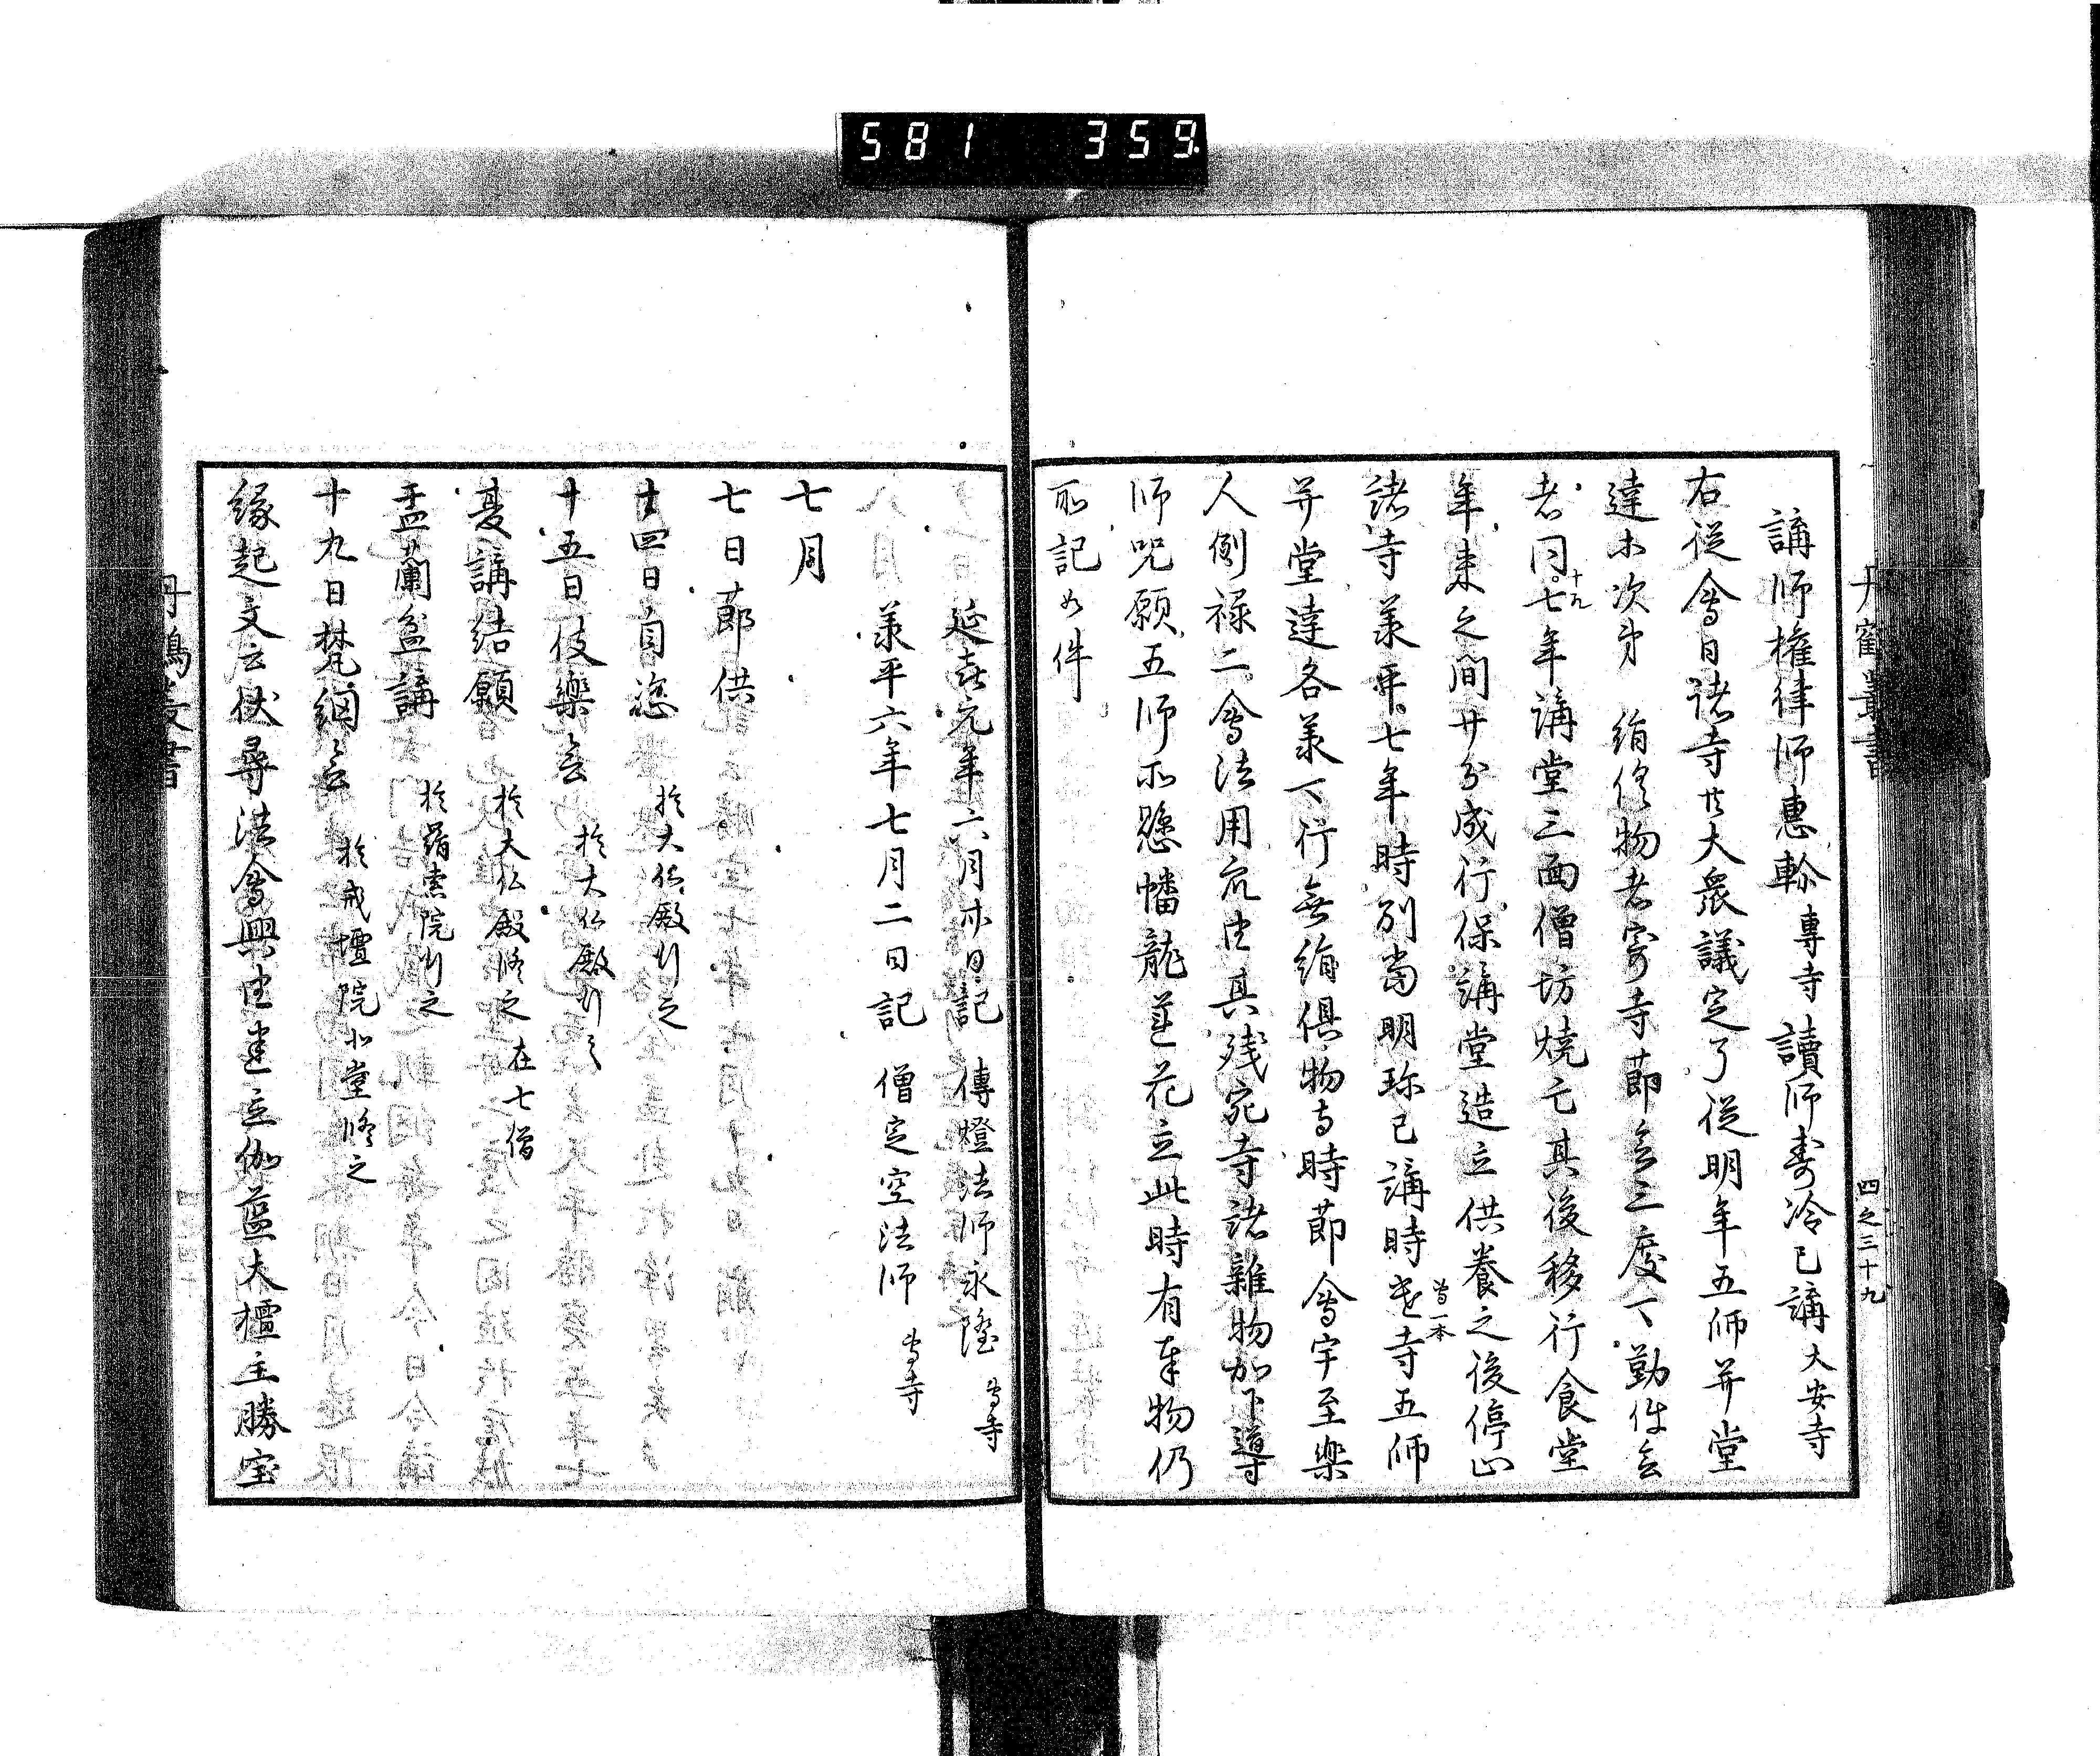 581 359
丹鶴叢書
四之三十九
講師権律師恵軫 専寺 讀師寿冷已講 大安寺
右従會日諸寺廿大衆議定了従明年五師并堂
達木次才 絹侭物者寄寺莭会三度下勤件会
者同十九七年講堂三面僧坊焼亡其後移行食堂
年来之間廿分成行保講堂造立供養之後停止
諸寺羕平七年時別當明珎已講時寺五師
當一本
并堂達各羕下行無絹俱物等時莭會宇至楽
人倒禄二會法用穴由其残宛寺諸雑物加下導
師咒願五師所懸幡龍蓮花立此時有奉物仍
所記如件
延喜元年六月廿日記 傳燈法師永隆 專寺
羕平六年七月二日記 僧定空法師 專寺
七月
七日莭供
十四日自恣 於大仏殿行之
十五日伎樂会 於大仏殿行之
夏講結願 於大仏殿修之 在七僧
盂蘭盆講 於羂索院行之
十九日梵網会 於戒壇院北堂修之
緣起文云伏尋法會興由建立伽藍大檀主勝宝
丹鶴叢書